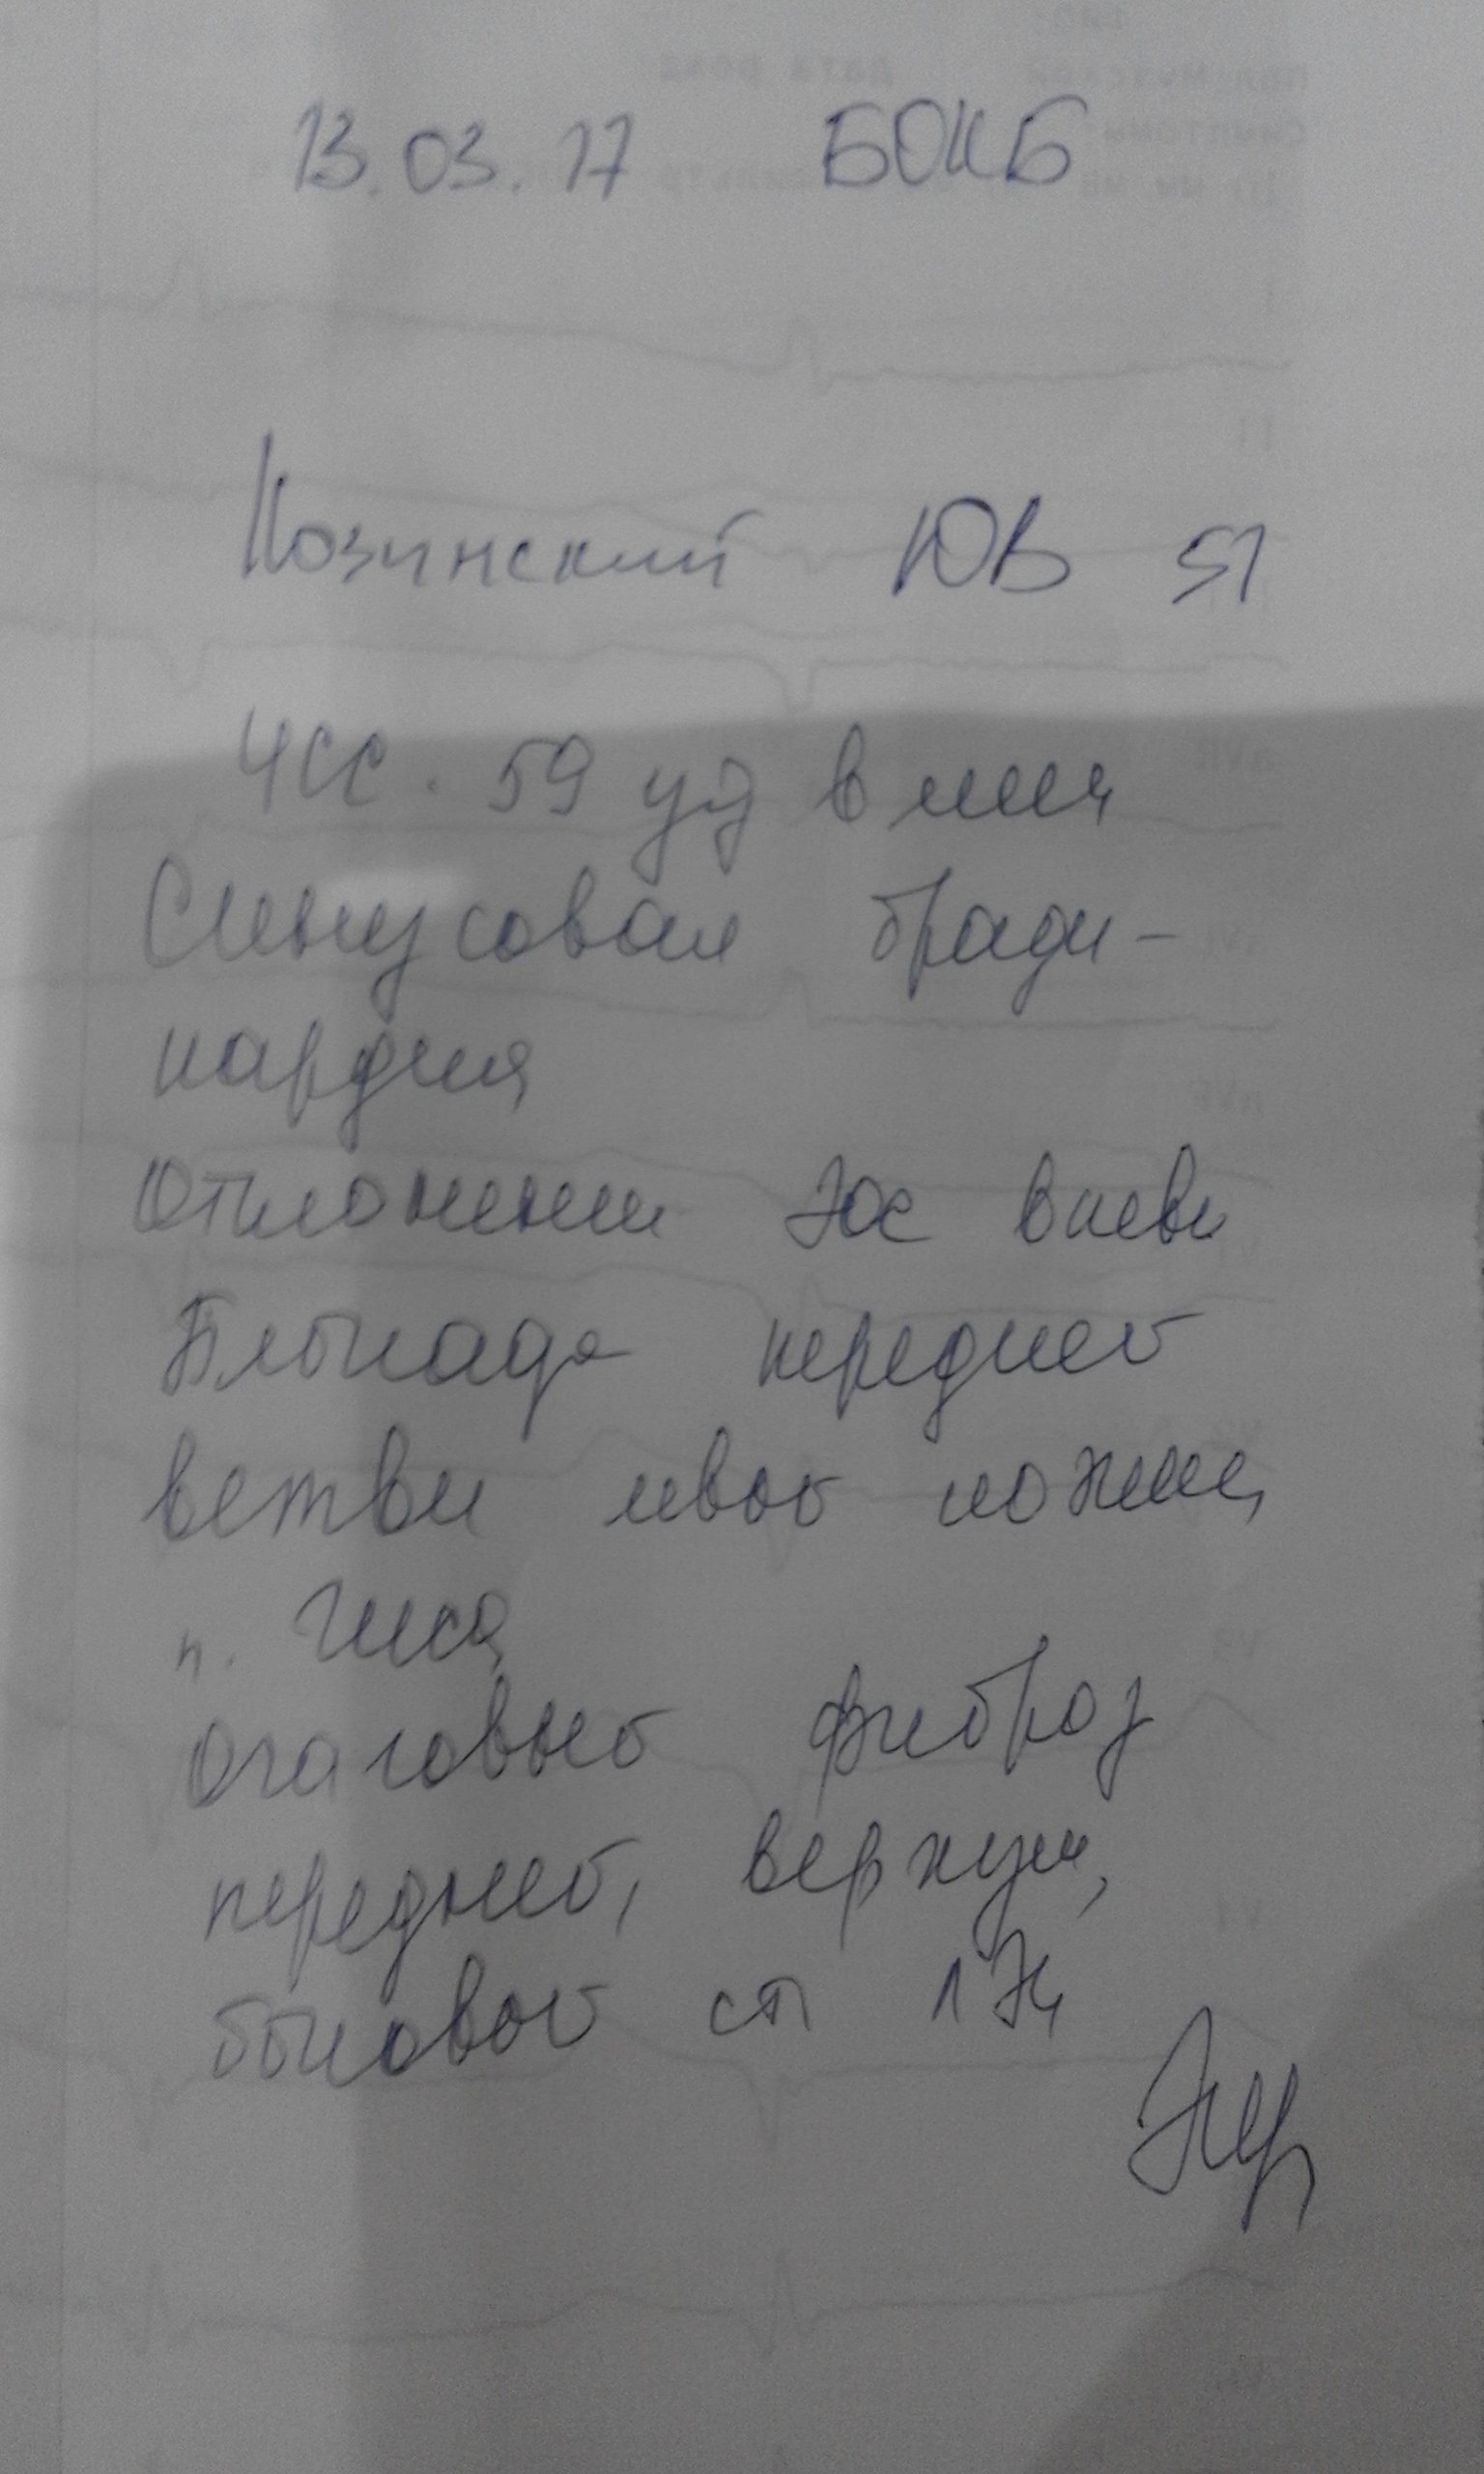 13.03.17 БОКБ
Козинский ЮВ 51
ЧСС. 59 уд в мин
Синусовая бради-
кардия
Отклонение ЭОС влево
Блокада передней
ветви левой ножки
п. Гиса
Очаговый фиброз
передней, верхуш,
боковой ст ЛЖ